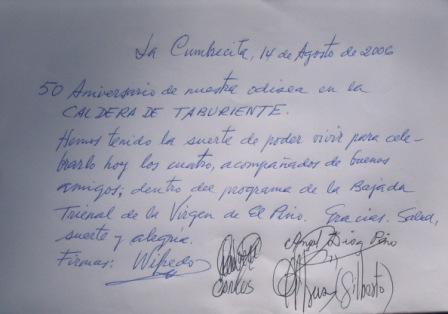 La Cumbrecita, 14 de Agosto de 2006
50 Aniversario de nuestra odisea en la
CALDERA DE TABURIENTE.
Hemos tenido la suerte de poder vivir para cele-
brarlo hoy los cuatro, acompañados de buenos
amigos; dentro del programa de la Bajada
Trienal de la Virgen de El Pino. Gracias. Salud,
suerte y alegria.
Firmas: Wifredo
Carlos
Angel Diaz Pino
(Gilberto)